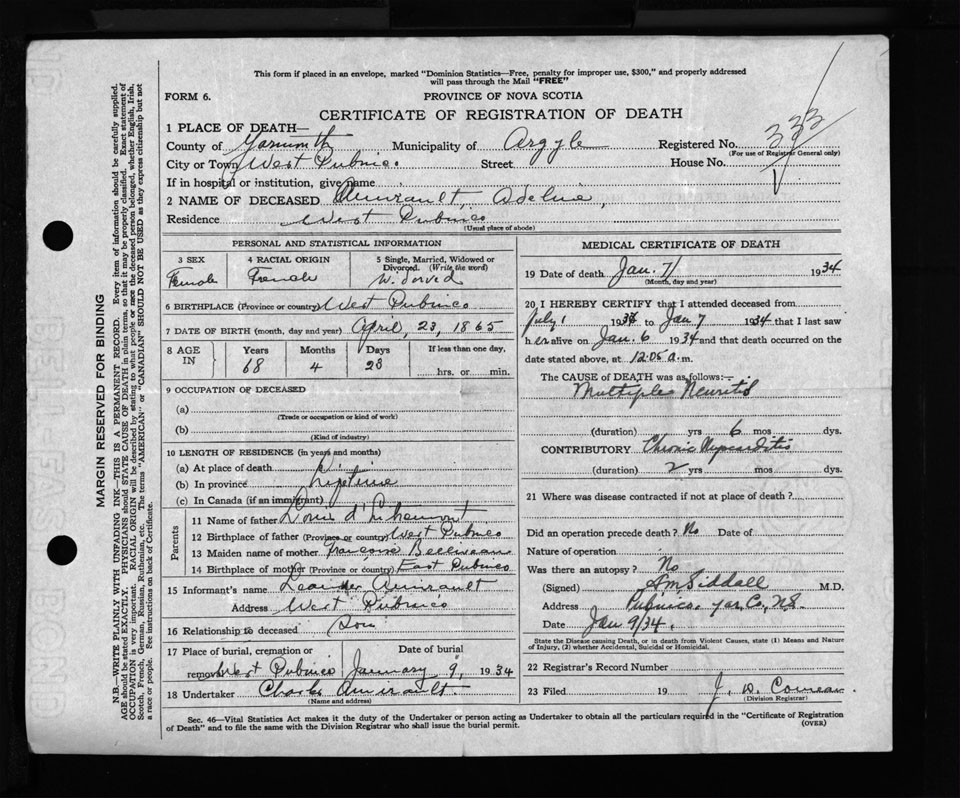 This form if placed in an envelope, marked "Dominion Statistics—Free, penalty for improper use, $300," and properly addressed
will pass through the Mail "FREE"
FORM 6.
PROVINCE OF NOVA SCOTIA
CERTIFICATE OF REGISTRATION OF DEATH
1 PLACE OF DEATH—
County of Yarmouth Municipality of Argyle Registered No. 333
(For use of Registrar General only)
City or Town West Pubnico. Street House No.
If in hospital or institution, give name
2 NAME OF DECEASED Amirault, Adeline,
Residence West Pubnico
(Usual place of abode)
PERSONAL AND STATISTICAL
3 SEX
Female
4 RACIAL ORIGIN
French
5 Single, Married, Widowed or
Divorced. (Write the word)
Widowed
6 BIRTHPLACE (Province or country) West Pubnico
7 DATE OF BIRTH (month, day and year) April, 23, 1865
8 AGE IN
Years Months Days If less than one day,
68 4 23 hrs. or min.
9 OCCUPATION OF DECEASED
(a)
(Trade or occupation or kind of work)
(b)
(Kind of industry)
10 LENGTH OF RESIDENCE (in years and months)
(a) At place of death
(b) In province Lifetime
(c) In Canada (if an immigrant)
Parents
11 Name of father Louis d'Entremont
12 Birthplace of father (Province or country) West Pubnico
13 Maiden name of mother
14 Birthplace of mother (Province or country) East Pubnico
15 Informant's name Leander Amirault
Address West Pubnico
16 Relationship to deceased Son
17 Place of burial, cremation or Date of burial
removal West Pubnico January 9, 1934
18 Undertaker Charles Amirault
(Name and address)
MEDICAL CERTIFICATE OF DEATH
19 Date of death Jan. 7/ 1934
(Month, day and year)
20 I HEREBY CERTIFY that I attended deceased from
July 1 193 to Jan 7 1934 that I last saw
her alive on Jan. 6 1934 and that death occurred on the
date stated above, at 12.05 a.m.
The CAUSE of DEATH was as follows:—
Multiple Neuritis
(duration) yrs 6 mos dys.
CONTRIBUTORY Chronic Myocarditis
(duration) 2 yrs mos dys.
21 Where was disease contracted if not at place of death?
Did an operation precede death? No Date of
Nature of operation
Was there an autopsy? No
(Signed) Siddall M.D.
Address Pubnico. Yar. Co., N.S.
Date Jan 9/34.
State the Disease causing Death, or in death from Violent Causes, state (1) Means and Nature
of Injury, (2) whether Accidental, Suicidal or Homicidal.
22 Registrar's Record Number
23 Filed 19 J. D. Comeau.
(Division Registrar)
Sec. 46—Vital Statistics Act makes it the duty of the Undertaker or person acting as Undertaker to obtain all the particulars required in the "Certificate of Registration
of Death" and to file the same with the Division Registrar who shall issue the burial permit.
(OVER)
MARGIN RESERVED FOR BINDING
N.B.—WRITE PLAINLY WITH UNFADING INK—THIS IS A PERMANENT RECORD. Every item of information should be carefully supplied.
AGE should be stated EXACTLY. PHYSICIANS should STATE CAUSE OF DEATH in plain terms, so that it may be properly classified. Exact statement of
OCCUPATION is very important. RACIAL ORIGIN will be described by stating to what people or race the deceased person belonged, whether English, Irish,
Scotch, French, German, Russian, Ruthenian, etc. The terms "AMERICAN" or "CANADIAN" SHOULD NOT BE USED as they express citizenship but not
a race or people. See instructions on back of Certificate.